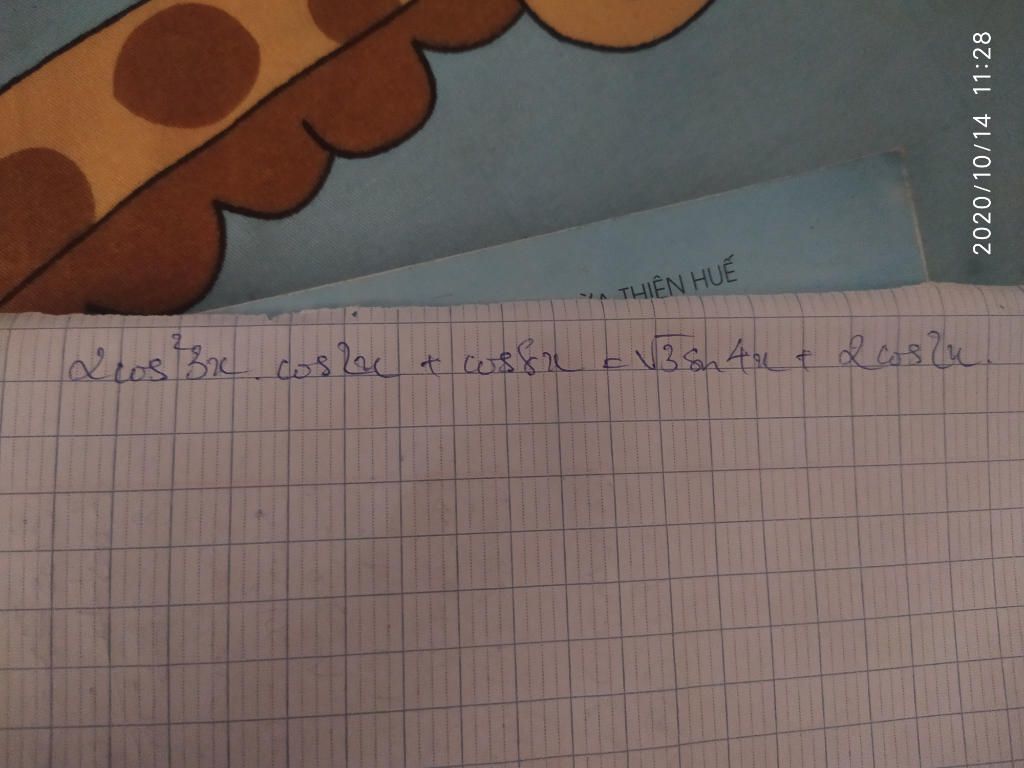 2020/10/14 11:28
THIÊN HUẾ
2cos²3x . cos2x + cos8x = √3sin4x + 2cos2x.